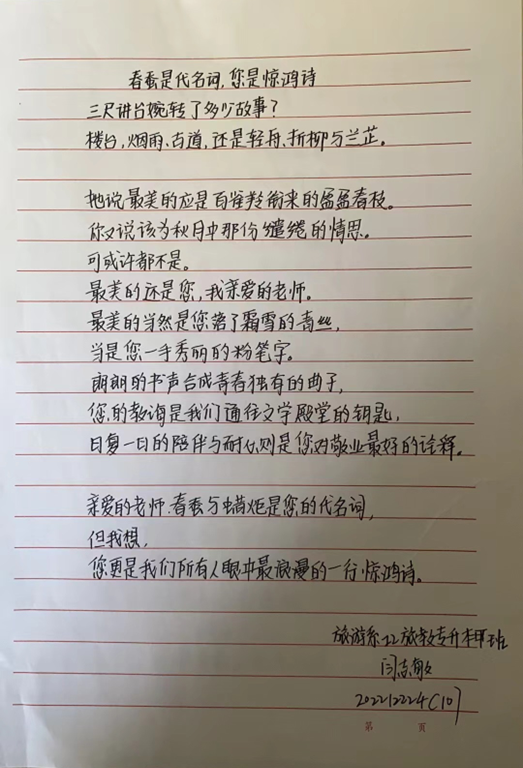 春蚕是代名词,您是惊鸿诗
三尺讲台婉转了多少故事?
楼台,烟雨、古道,还是轻舟、折柳与兰芷。
她说最美的应是百雀羚衔来的盈盈春枝。
你又说该为秋月中那份缱绻的情思。
可或许都不是。
最美的还是您,我亲爱的老师。
最美的当然是您落了霜雪的青丝,
当是您一手秀丽的粉笔字。
朗朗的书声合成青春独有的曲子,
您的教诲是我们通往文学殿堂的钥匙,
日复一日的陪伴与耐心则是您对敬业最好的诠释。
亲爱的老师.春蚕与蜡炬是您的代名词,
但我想,
您更是我们所有人眼中最浪漫的一行惊鸿诗。
旅游系22旅教专升本班
闫志敏
202212224(10)
第 页